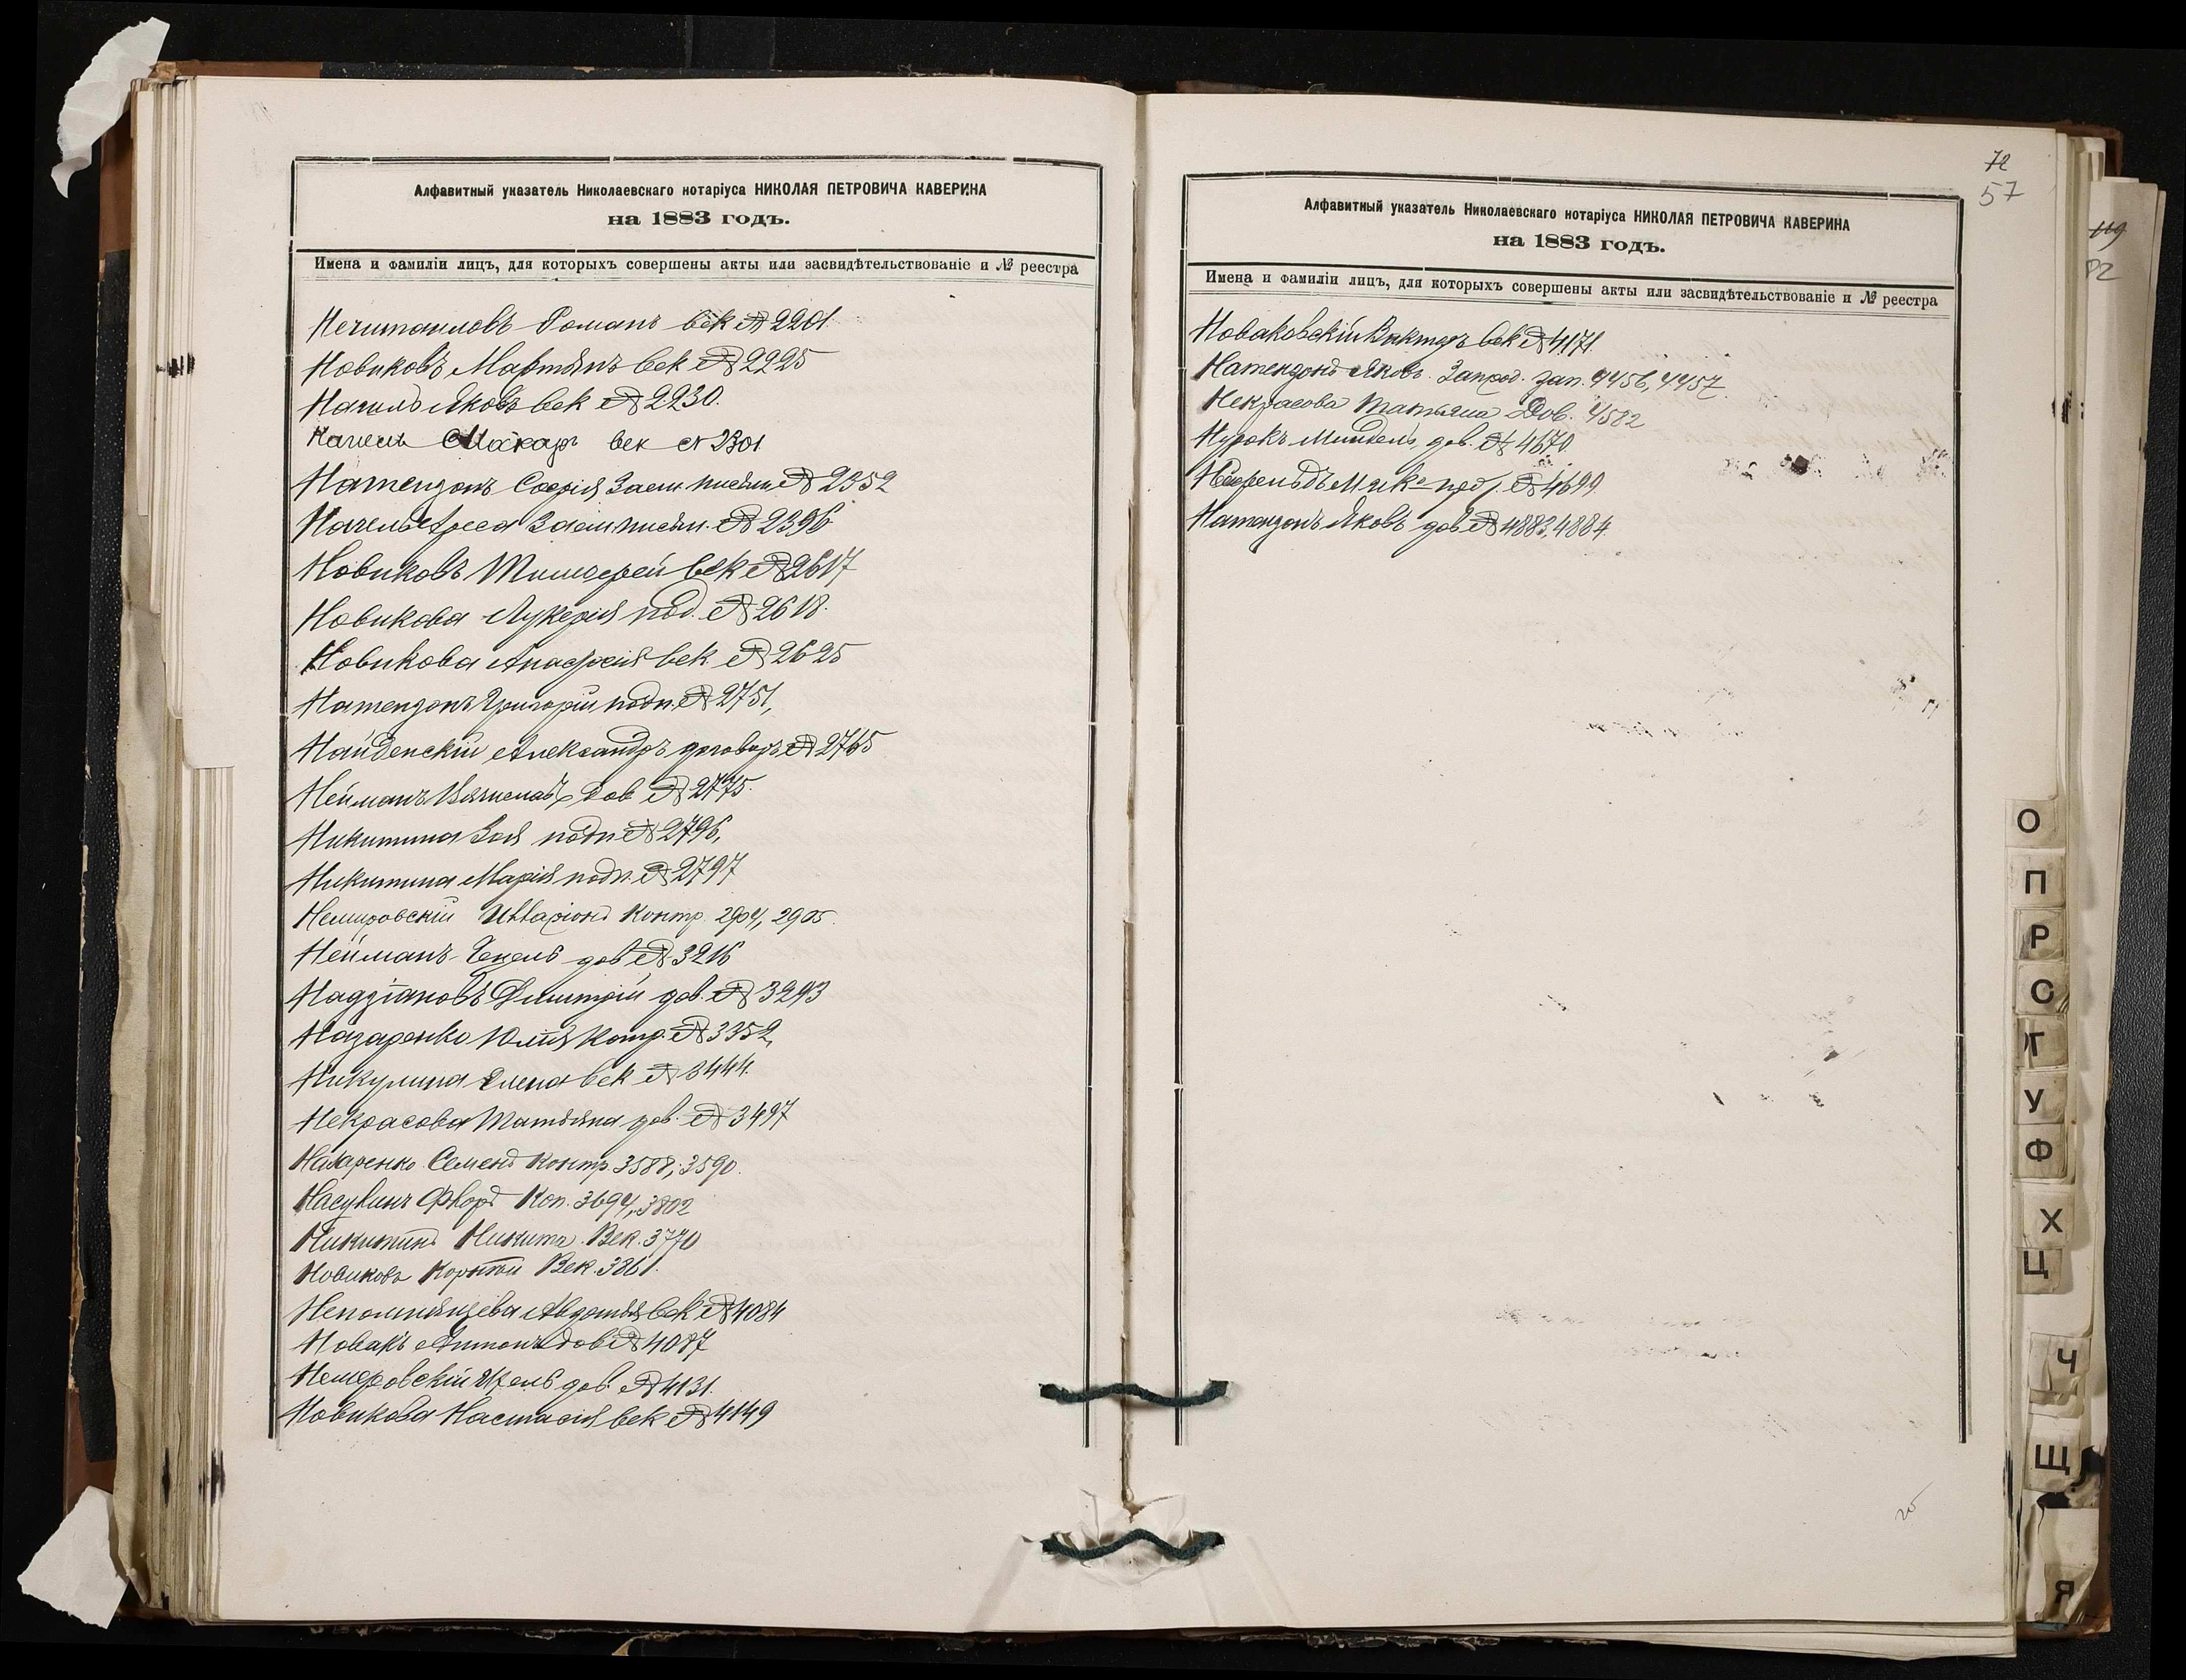 Алфавитный указатель Николаевскаго нотаріуса НИКОЛАЯ ПЕТРОВИЧА КАВЕРИНА
на 1883 годъ.
Имена и фамиліи лицъ, для которыхъ совершены акты или засвидѣтельствованіе и № реестра
Нечитаиловъ Романъ век № 2201.
Новиковъ Мартынъ век № 2225
Нагиль Яковъ век № 2230.
Макаръ век № 2301
Натензонъ Софія Заем письм № 2352
Заем письм. № 2396
Новиковъ Тимофей век № 2617
Новикова Лукерія под. № 2618.
Новикова век № 2625
Натензонъ Григорій подп. № 2751,
Найденскій Александръ договоръ № 2765
Нейманъ дов № 2775.
Никитина Зоя подп № 2796,
Никитина Марія подп. № 2797
Немировскій Контр. 2904, 2905.
Нейманъ дов № 3216
Дмитрій дов. № 3293
Назаренко Юлія Контр. № 3352,
Никулина Елена век № 3444.
Некрасова Татьяна дов. № 3497
Назаренко Семенъ Контр. 3588, 3590.
Коп. 3694, 3802
Никитинъ Никита. Век. 3770
Новиковъ Корнѣй Век. 3861.
Непомнящева Авдотья век № 4084
Новакъ Антонъ дов № 4087
дов. № 4131.
Новикова Настасія век № 4149
72
57
Алфавитный указатель Николаевскаго нотаріуса НИКОЛАЯ ПЕТРОВИЧА КАВЕРИНА
на 1883 годъ.
Имена и фамиліи лицъ, для которыхъ совершены акты или засвидѣтельствованіе и № реестра
Новаковскій Викторъ век № 4171.
Натензонъ Яковъ. Запрод. зап. 4456, 4457.
Некрасова Татьяна Дов. 4582
Нурокъ Мендель дов. № 4670.
№ 4699.
Натензонъ Яковъ дов № 4883, 4884.
119
82
О
П
Р
С
Т
У
Ф
Х
Ц
Ч
Щ
Я